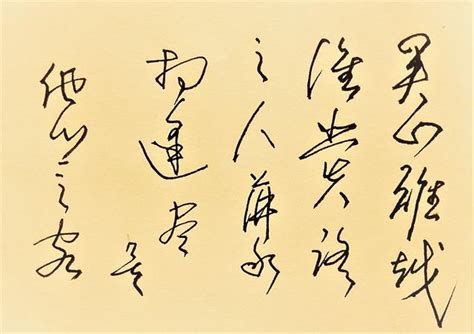 关山难越
谁悲失路
之人萍水
相逢尽是
他乡之客